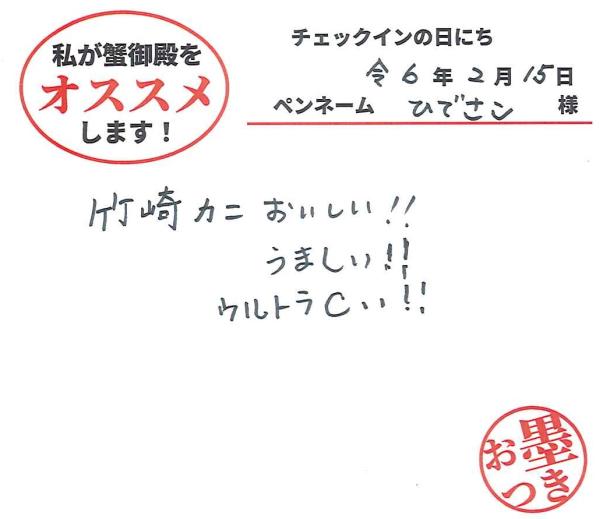 私が蟹御殿を
オススメ
します！
チェックインの日にち
令6年2月15日
ペンネーム ひでさン 様
竹崎カニ おいしい!!
うましい!!
ウルトラCい!!
お墨
つき